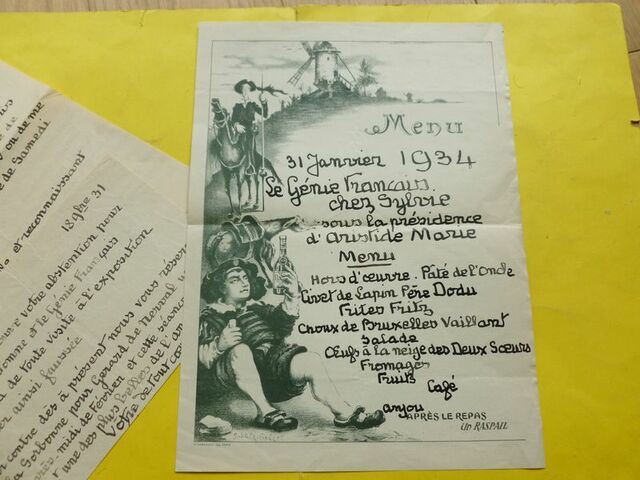 Menu
31 Janvier 1934
Le Génie Français
chez Sylvie
sous la présidence
d'Aristide Marie
Menu
Hors d'œuvre. Paté de l'Oncle
Civet de Lapin Père Dodu
Frites Fritz
Choux de Bruxelles Vaillant
Salade
Œufs à la neige des Deux Sœurs
Fromages
Fruits
Café
anjou
APRÈS LE REPAS
Un RASPAIL
ous
on de me
e de Samedi
et reconnaissant
18 9bre 31
votre abstention pour
onne et le Génie Français
de toute visite à l'exposition
er ainsi faussée
contre dès à présent nous vous réser
la Sorbonne pour Gérard de Nerval un
midi de Février et cette séance
une des plus belles de l'an
Votre